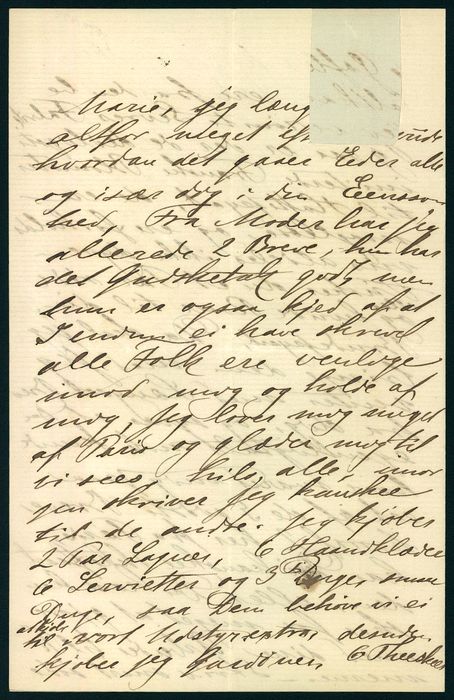 Marie, jeg læng
altfor meget eft
hvordan det gaaer Eder alle
og især dig i din Eensom
hed, Fra Moder har jeg
allerede 2 Breve, hun har
det Gudskelov godt, men
hun er ogsaa kjed af at
I endnu ei have skrevet
alle Folk ere venlige
imod mig og holde af
mig, jeg lover mig meget
af Paris og glæder mig til
vi sees, hils alle, imor
gen skriver jeg kanskee
til de andre. jeg kjøber
2 Par Lagner, 6 Haandklæder
6 Servietter og 3 Duge, smaa
Duge, saa Dem behøve vi ei
til vort Udstyr, desuden
kjøber jeg Gardiner 6 Theeskeer